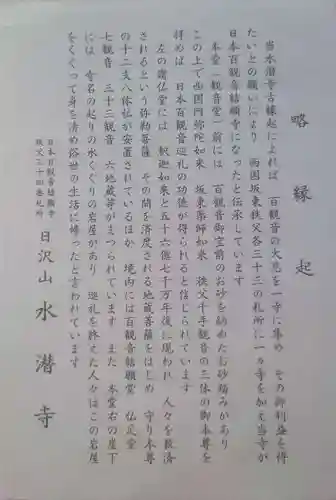 略縁起
当水潜寺古縁起によれば 百観音の大慈を一寺に集め その御利益を得
たいとの願いにより 西国坂東秩父各三十三の札所に一ヵ寺を加え当寺が
日本百観音結願寺になったと伝承しています
本堂(観音堂)前には 百観音御宝前のお砂を納めたお砂踏みがあり
この上で西国阿弥陀如来 坂東薬師如来 秩父千手観音の三体の御本尊を
拝めば 日本百観音巡礼の功徳が得られると信じられています
左の讃仏堂には 釈迦如来と五十六億七千万年後に現われ 人々を救済
されるという弥勒菩薩 その間を済度される地蔵菩薩をはじめ 守り本尊
の十二支八体仏が安置されているほか 境内には百観音結願堂 仏足堂
七観音 三十三観音 六地蔵等がまつられています また 本堂右の崖下
には 寺名の起りの水くぐりの岩屋があり 巡礼を終えた人々はこの岩屋
をくぐって身を清め俗世の生活に帰ったと言われています
日本百観音結願寺
秩父三十四番札所
日沢山 水潜寺